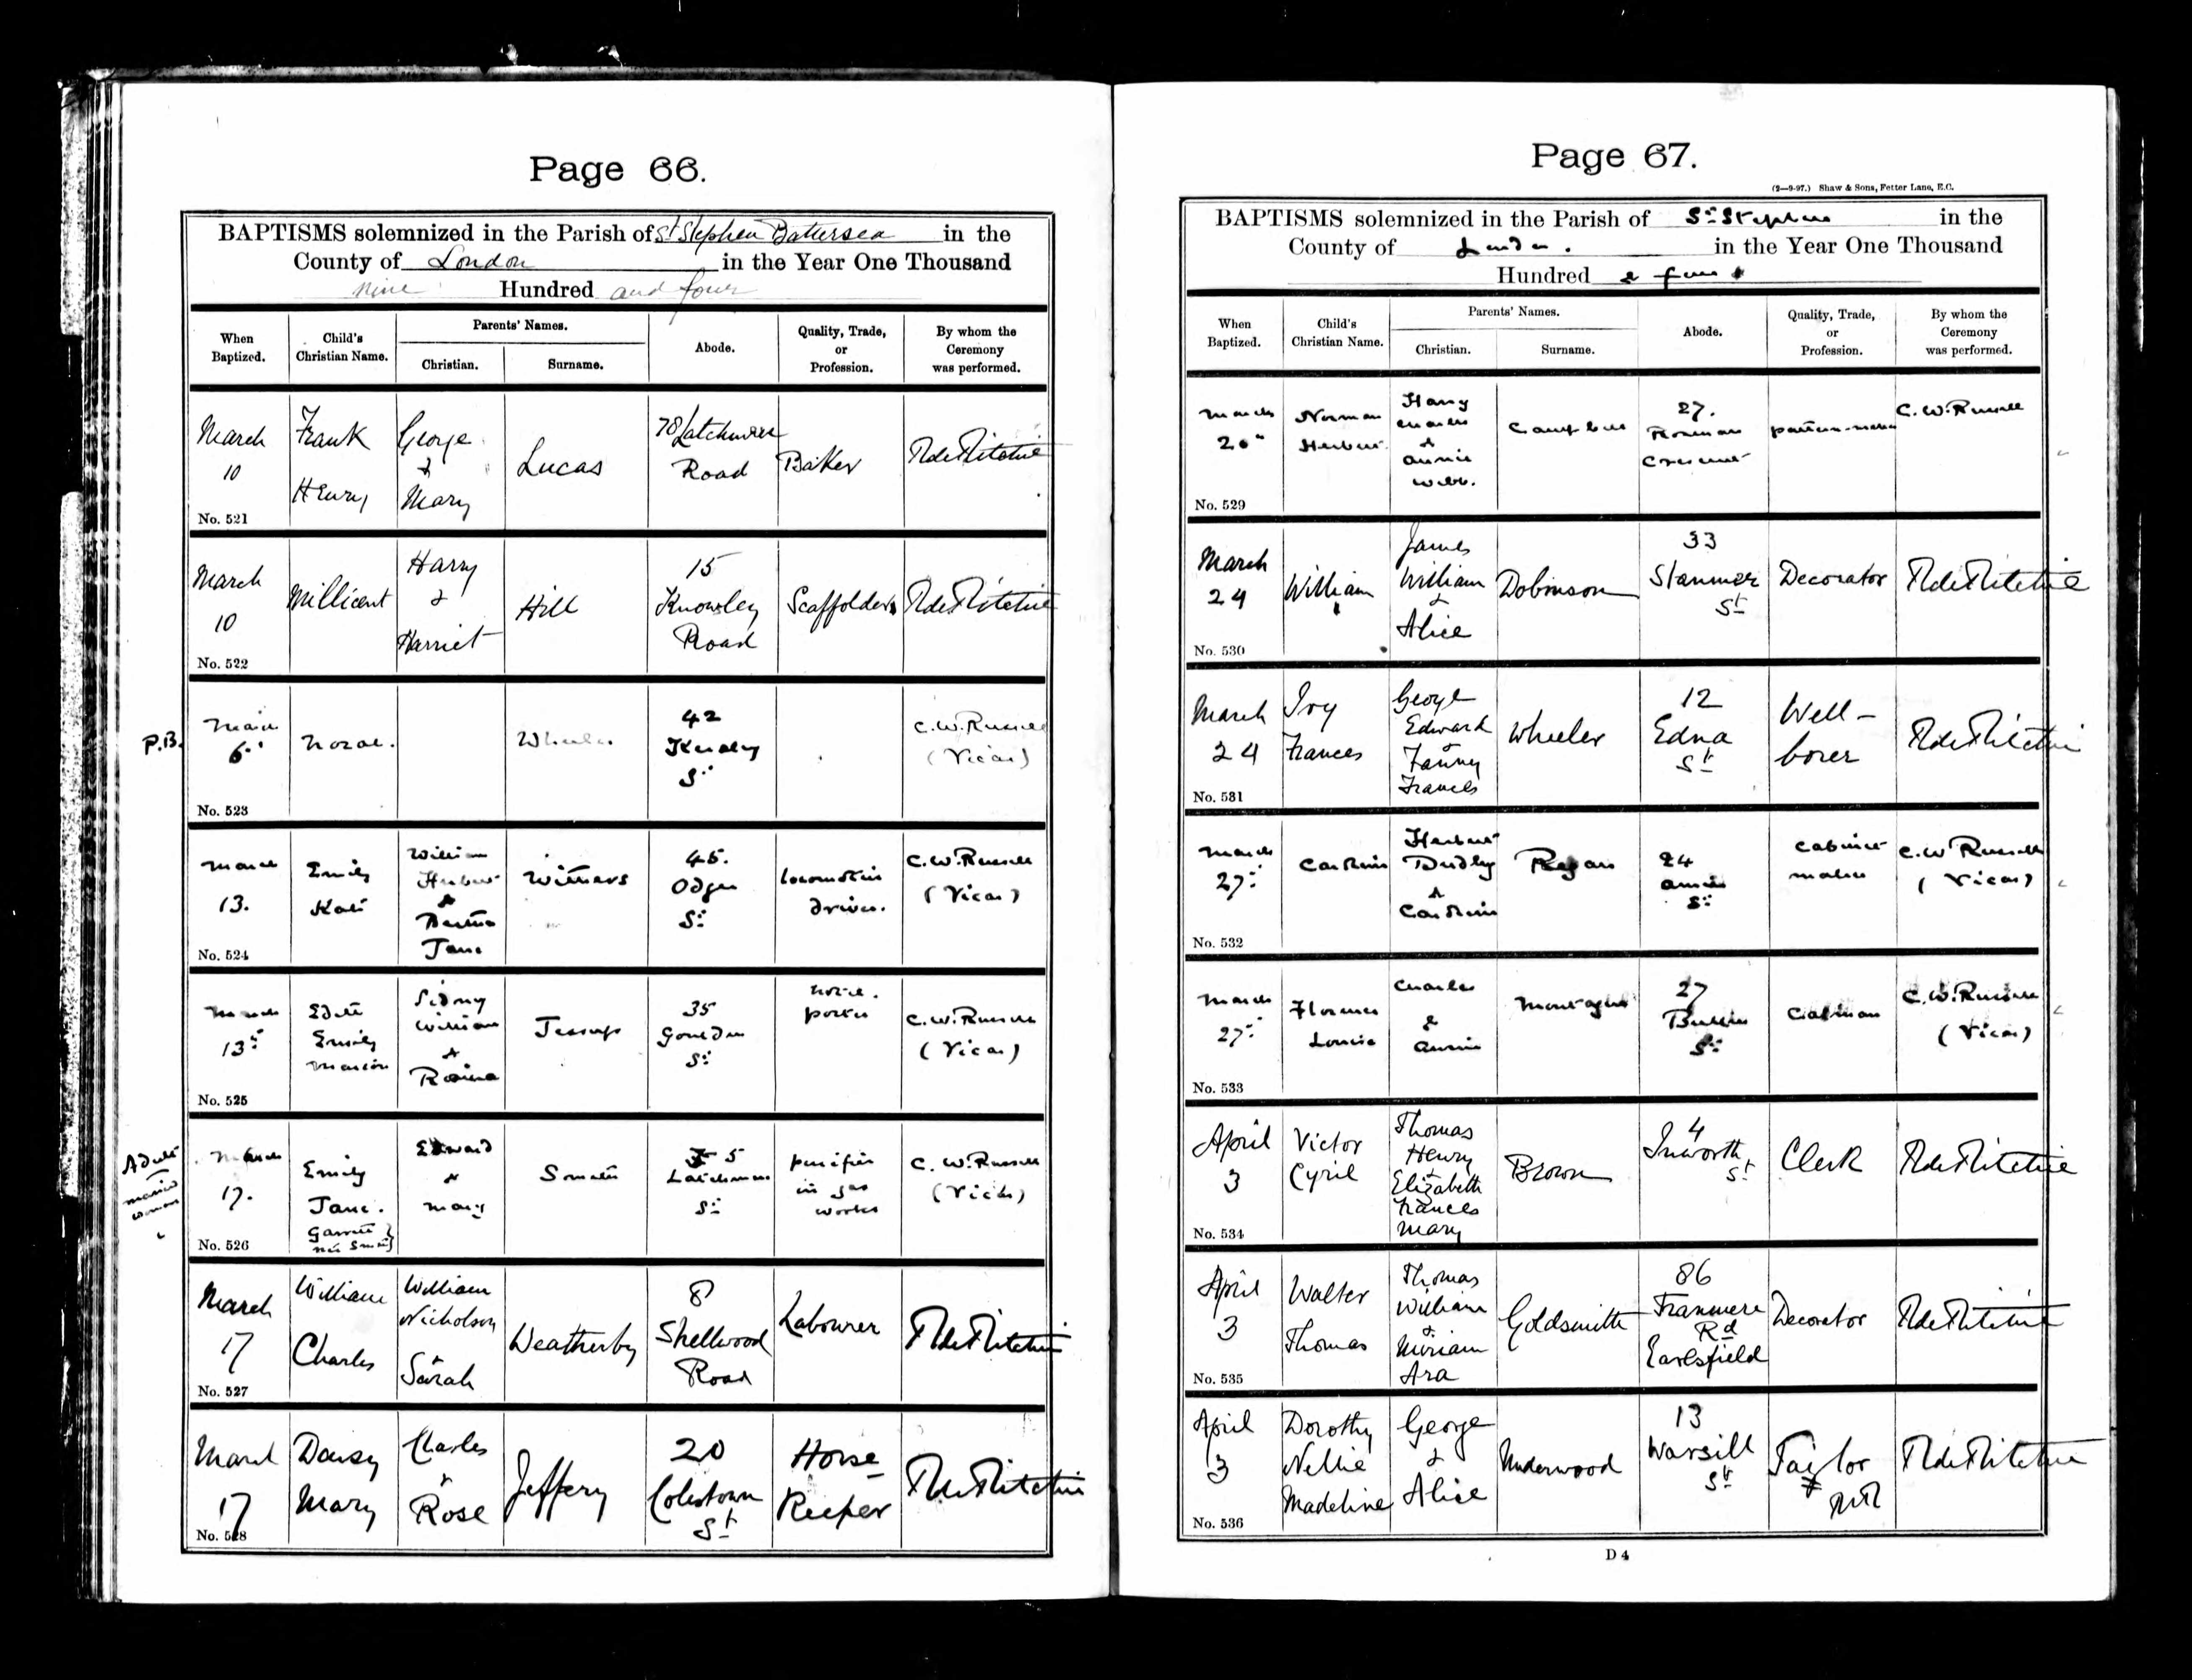 Page 66.
BAPTISMS solemnized in the Parish of St Stephen Battersea in the
County of London in the Year One Thousand
nine Hundred and four
When Baptized. Child's Christian Name. Parents' Names. Christian. Surname. Abode. Quality, Trade, or Profession. By whom the Ceremony was performed.
March 10 Frank Henry George & Mary Lucas 78 Latchmere Road Baker R de R Ritchie
No. 521
March 10 Millicent Harry & Harriet Hill 15 Knowsley Road Scaffolder R de R Ritchie
No. 522
P.B.
March 6th Norah. Wheeler 42 St C.W. Russell (Vicar)
No. 523
March 13. Emily Kate William Herbert & Bertha Jane Withers 45. Odger St Locomotive driver. C.W. Russell (Vicar)
No. 524
March 13th Edith Emily Marion Sidney William & Rosina Jessup 35 Goulden St porter C.W. Russell (Vicar)
No. 525
Adult married woman
March 17. Emily Jane. Garrett née Smith} Edward & Mary 5 Latchmere St purifier in gas works C.W. Russell (Vicar)
No. 526
March 17 William Charles William Nicholson & Sarah Weatherby 8 Shellwood Road Labourer R de R Ritchie
No. 527
March 17 Daisy Mary Charles & Rose Jeffery 20 Colestown St Horse-Keeper R de R Ritchie
No. 528
Page 67.
(2—9-97.) Shaw & Sons, Fetter Lane, E.C.
BAPTISMS solemnized in the Parish of St Stephen in the
County of London. in the Year One Thousand
Hundred & four
When Baptized. Child's Christian Name. Parents' Names. Christian. Surname. Abode. Quality, Trade, or Profession. By whom the Ceremony was performed.
March 20th Norman Herbert Harry Charles & Annie Webb. Campbell 27. Crescent pattern-maker C.W. Russell
No. 529
March 24 William James William & Alice Dobinson 33 Stanmer St Decorator R de R Ritchie
No. 530
March 24 Ivy Frances George Edward & Fanny Frances Wheeler 12 Edna St Well-borer R de R Ritchie
No. 531
March 27th Herbert Dudley & Regan 24 St Cabinet maker C.W Russell (Vicar)
No. 532
March 27th Florence Louisa Charles & Annie Montague 27 St Cabman C.W. Russell (Vicar)
No. 533
April 3 Victor Cyril Thomas Henry & Elizabeth Frances Mary Brown 4 Inworth St Clerk R de R Ritchie
No. 534
April 3 Walter Thomas Thomas William & Miriam Ara Goldsmith 86 Tranmere Rd Earlsfield Decorator R de R Ritchie
No. 535
April 3 Dorothy Nellie Madeline George & Alice Underwood 13 Warsill St Taylor R de R Ritchie
No. 536
D 4